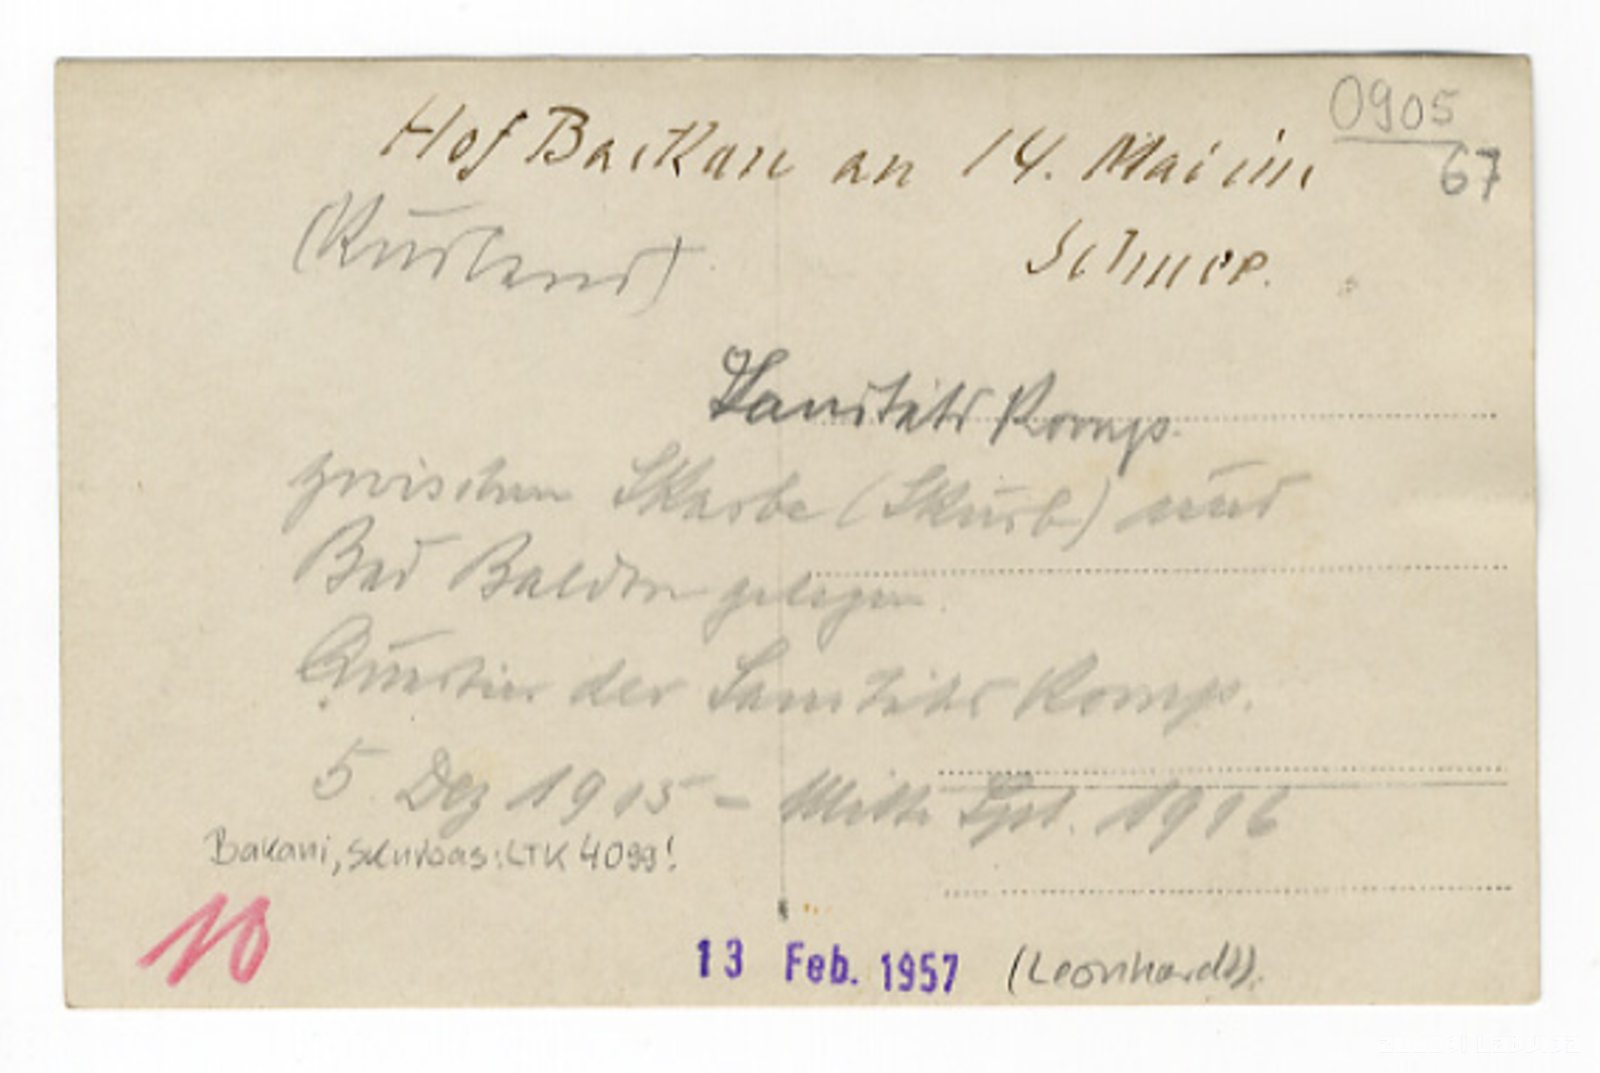 0905
67
Hof Backan an 14. Mai im
Schnee.
(Kurland)
Sanitäts Komp.
zwischen Skarbe (Skurb) und
Bad Baldon gelegen.
Quartier der Sanitäts Komp.
5. Dez 1915 - Mitte Spt. 1916
Bakani, Skurbas: LTK 4099!
10
13 Feb. 1957 (Leonhardt).